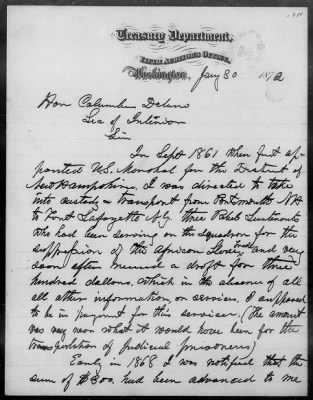 Treasury Department,
FIFTH AUDITOR'S OFFICE,
Washington, Jany 30 1872
Hon Columbus Delano
Sec of Interior
Sir
In Sept 1861 when first ap-
pointed U.S. Marshal for the District of
New Hampshire, I was directed to take
into custody & transport from Portsmouth NH
to Fort Lafayette N.Y. three Rebel Lieutenants
who had been serving on the squadron for the
suppression of the African Slave Trade and very
soon after received a draft for three
hundred dollars, which in the absence of all
all other information or services, I supposed
to be in payment for this service. (The amount
was very near what it would have been for the
transportation of judicial prisoners)
Early in 1868 I was notified that the
sum of $300. had been advanced to me